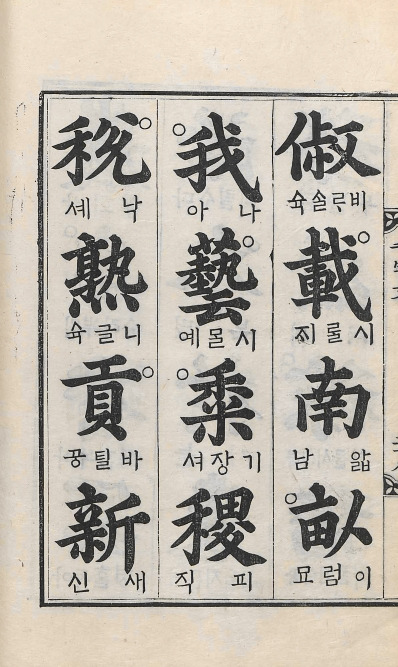 俶
비루솔 슉
載
시롤 지
南
앏 남
畝
이럼 묘
我
나 아
藝
시몰 예
黍
기장 셔
稷
피 직
稅
낙 셰
熟
니글 슉
貢
바틸 공
新
새 신